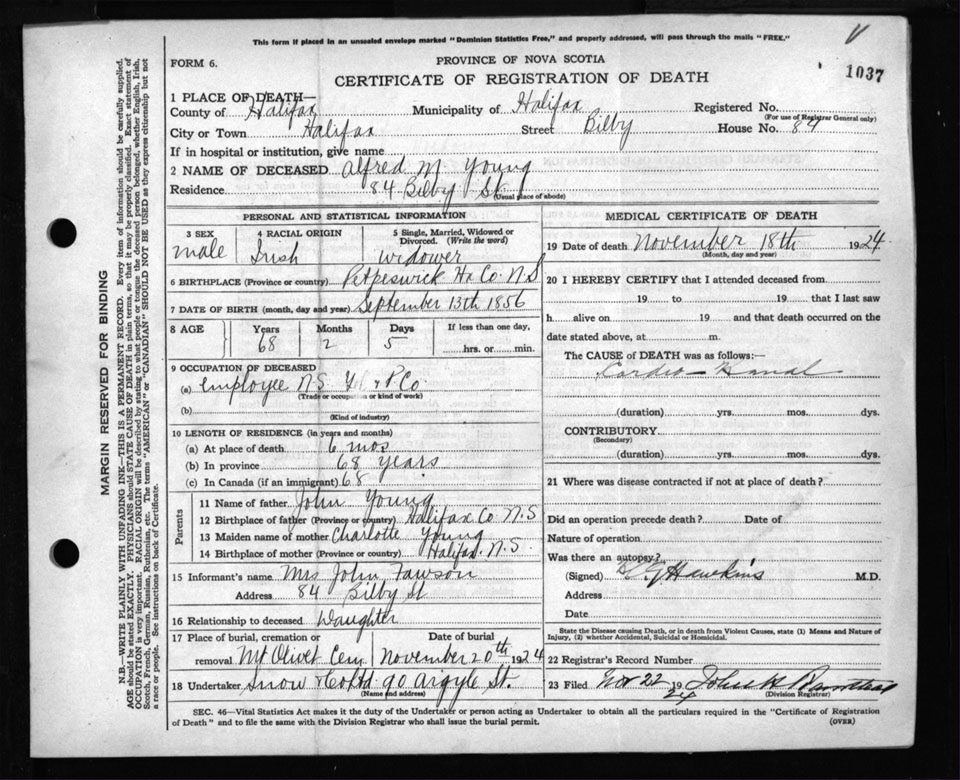 This form if placed in an unsealed envelope marked "Dominion Statistics Free," and properly addressed, will pass through the mails "FREE."
V
FORM 6.
PROVINCE OF NOVA SCOTIA
CERTIFICATE OF REGISTRATION OF DEATH
1037
1 PLACE OF DEATH—
County of Halifax Municipality of Halifax Registered No.
(For use of Registrar General only)
City or Town Halifax Street Bilby House No. 84
If in hospital or institution, give name
2 NAME OF DECEASED Alfred M Young
Residence 84 Bilby St.
(Usual place of abode)
PERSONAL AND STATISTICAL INFORMATION
3 SEX 4 RACIAL ORIGIN 5 Single, Married, Widowed or Divorced. (Write the word)
male Irish widower
6 BIRTHPLACE (Province or country) Petpeswick Hx Co. N.S
7 DATE OF BIRTH (month, day and year) September 13th 1856
8 AGE Years Months Days If less than one day,
68 2 5 hrs. or min.
9 OCCUPATION OF DECEASED
(a) employee N.S. & P Co.
(Trade or occupation or kind of work)
(b)
(Kind of industry)
10 LENGTH OF RESIDENCE (in years and months)
(a) At place of death 6 mos
(b) In province 68 years
(c) In Canada (if an immigrant) 68
Parents
11 Name of father John Young
12 Birthplace of father (Province or country) Halifax Co. N.S
13 Maiden name of mother Charlotte Young
14 Birthplace of mother (Province or country) Halifax. N.S.
15 Informant's name Mrs John Fawson
Address 84 Bilby St
16 Relationship to deceased Daughter
17 Place of burial, cremation or removal Mt Olivet Cem Date of burial November 20th 1924
18 Undertaker Snow & Co Ltd 90 Argyle St.
(Name and address)
MEDICAL CERTIFICATE OF DEATH
19 Date of death November 18th 1924.
(Month, day and year)
20 I HEREBY CERTIFY that I attended deceased from
19 to 19 that I last saw
h alive on 19 and that death occurred on the
date stated above, at m.
The CAUSE of DEATH was as follows:—
Cardio-
(duration) yrs. mos. dys.
CONTRIBUTORY
(Secondary)
(duration) yrs. mos. dys.
21 Where was disease contracted if not at place of death?
Did an operation precede death? Date of
Nature of operation
Was there an autopsy?
(Signed) Hawkins M.D.
Address
Date
State the Disease causing Death, or in death from Violent Causes, state (1) Means and Nature of Injury, (2) whether Accidental, Suicidal or Homicidal.
22 Registrar's Record Number
23 Filed Nov 22 1924 John
(Division Registrar)
SEC. 46—Vital Statistics Act makes it the duty of the Undertaker or person acting as Undertaker to obtain all the particulars required in the "Certificate of Registration
of Death" and to file the same with the Division Registrar who shall issue the burial permit. (OVER)
MARGIN RESERVED FOR BINDING
N.B.—WRITE PLAINLY WITH UNFADING INK—THIS IS A PERMANENT RECORD. Every item of information should be carefully supplied.
AGE should be stated EXACTLY. PHYSICIANS should STATE CAUSE OF DEATH in plain terms, so that it may be properly classified. Exact statement of
OCCUPATION is very important. RACIAL ORIGIN will be described by stating to what people or tongue the deceased person belonged, whether English, Irish,
Scotch, French, German, Russian, Ruthenian, etc. The terms "AMERICAN" or "CANADIAN" SHOULD NOT BE USED as they express citizenship but not
a race or people. See instructions on back of Certificate.